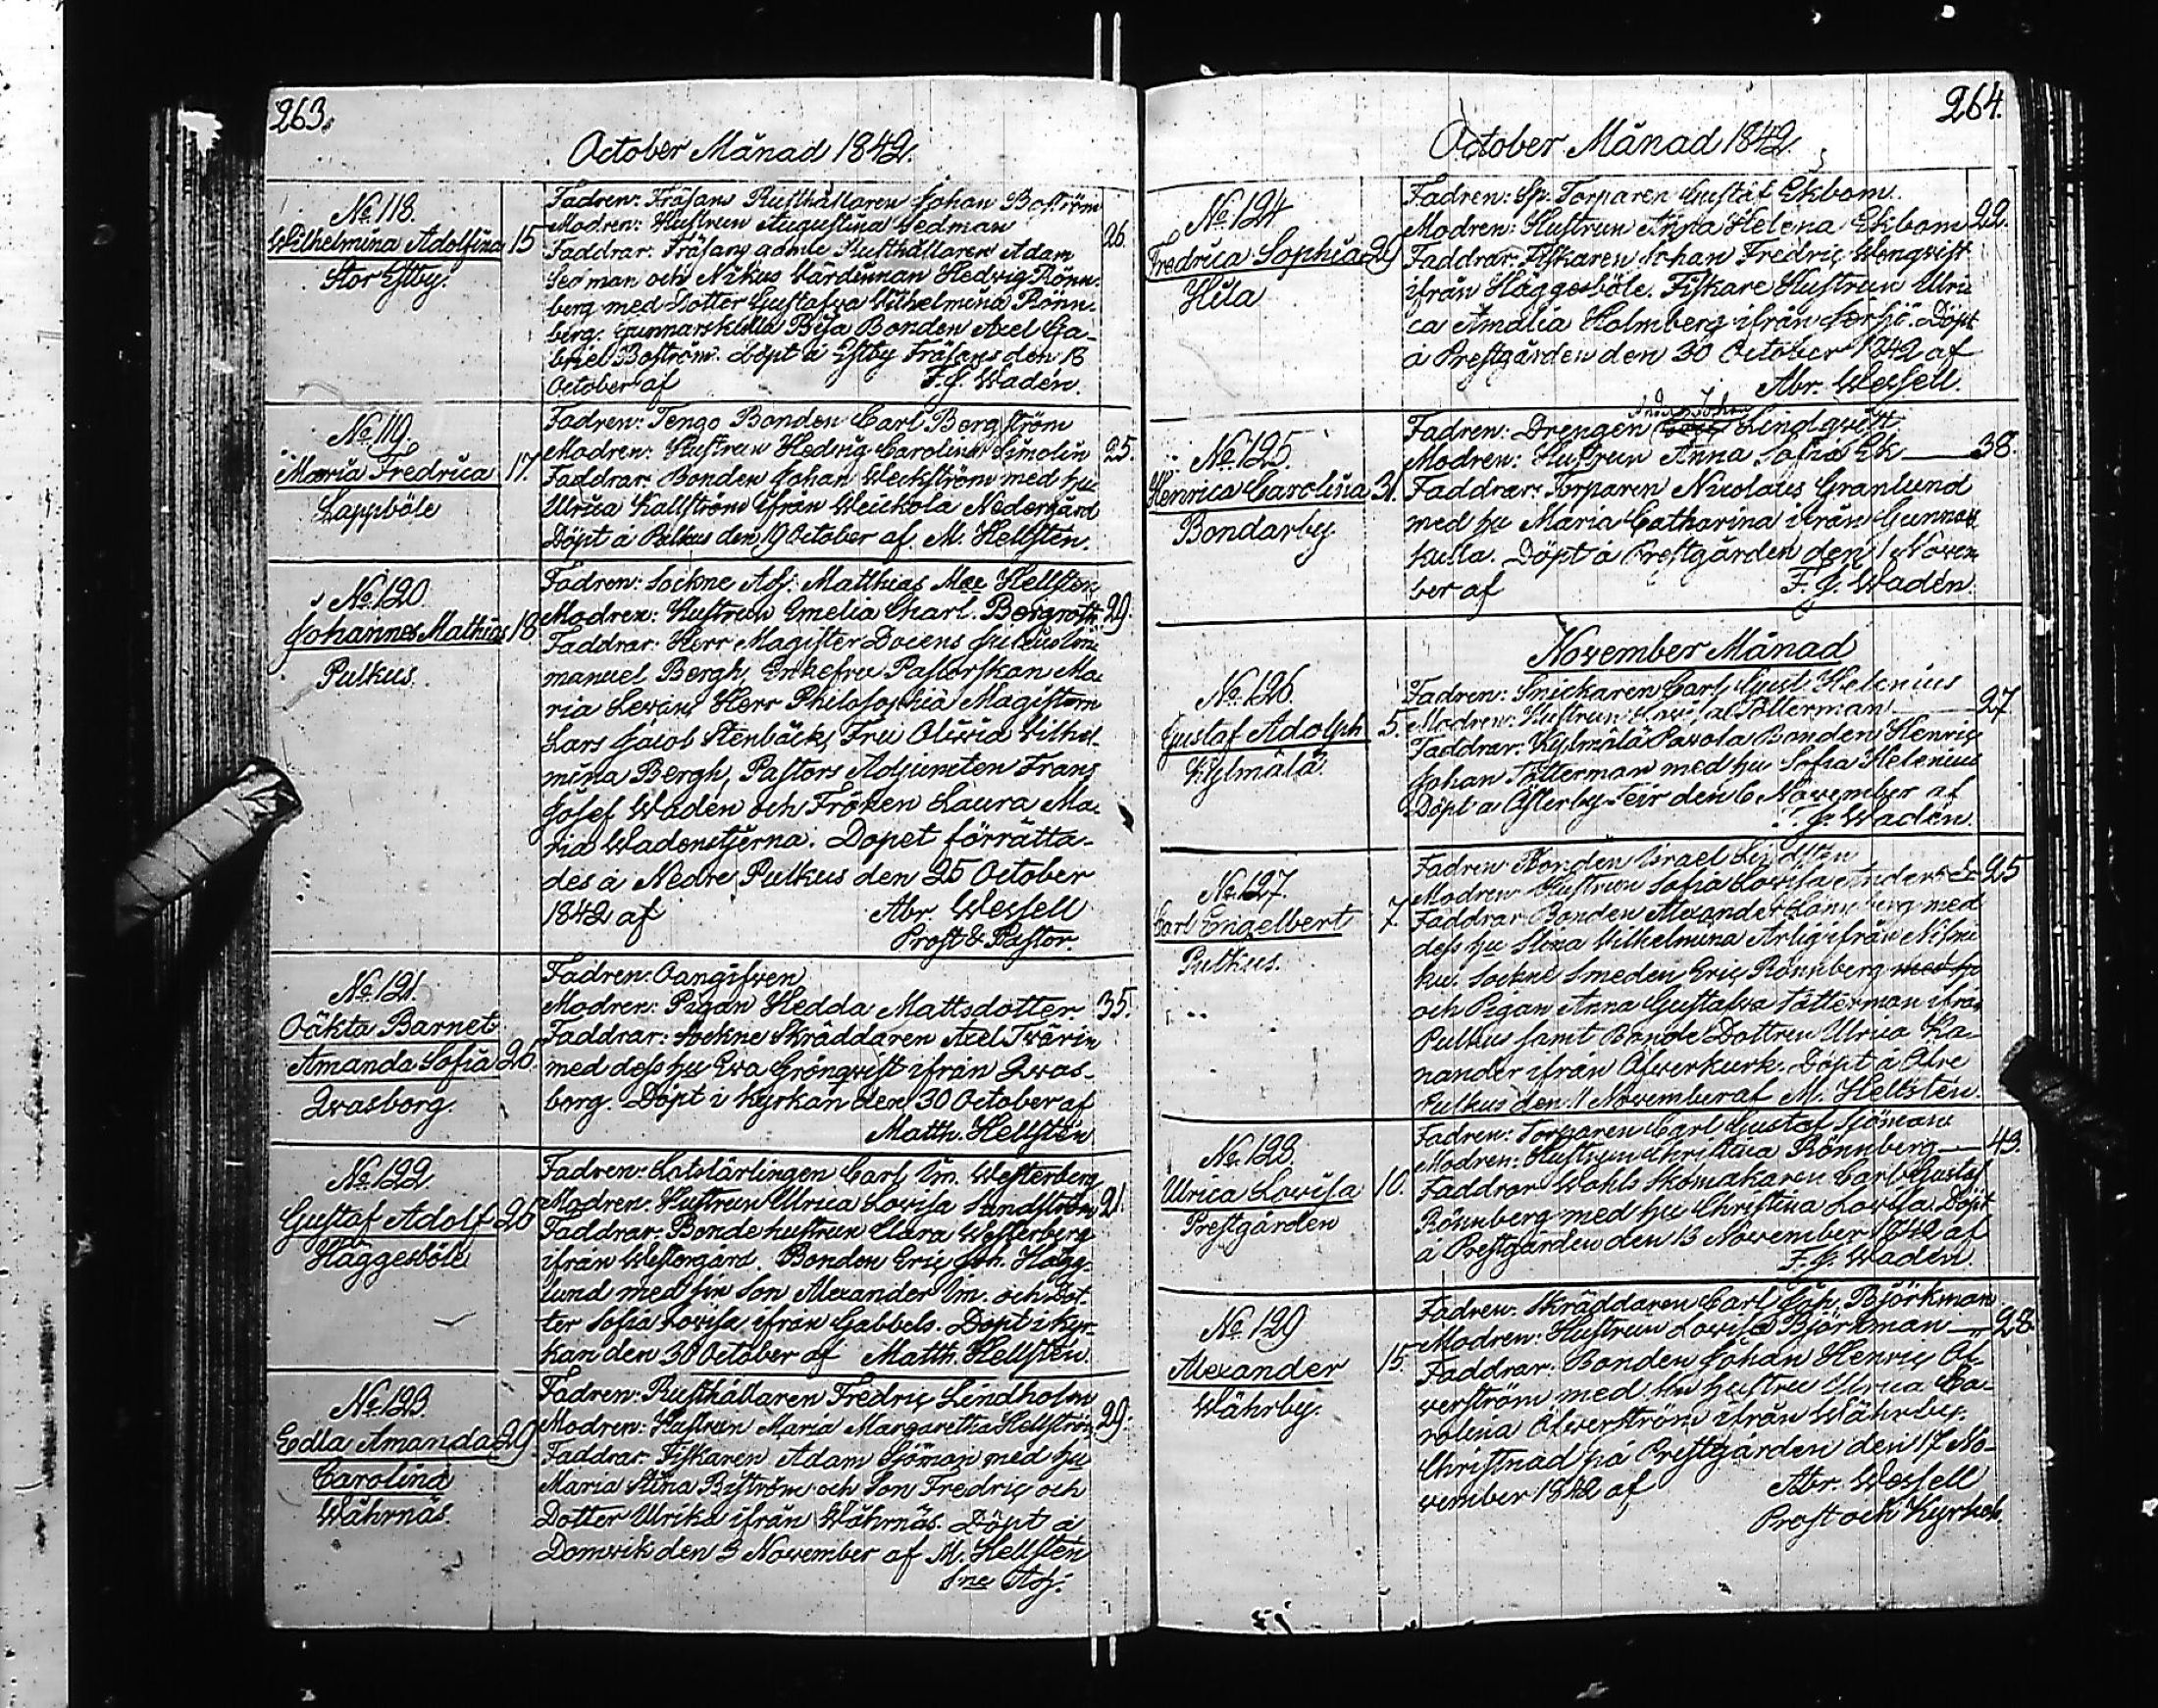 263.
October Månad 1842.
No 118.
Wilhelmina Adolfina 15
Stor Estby.
Fadren: Fräsans Rusthållaren Johan Boström
Modren: Hustrun Augustina Sedman 26.
Faddrar: Fräsans gamle Rusthållaren Adam
Sedman och Nikus Värdinnan Hedvig Rönn-
berg med Dotter Gustafva Wilhelmina Rönn-
berg. Gunnarskulla Bisa Bonden Axel Ga-
briel Boström. Döpt å Estby Fräsans den 18
October af F. J. Wadén.
No 119.
Maria Fredrica 17.
Lappböle
Fadren: Tengo Bonden Carl Bergström
Modren: Hustrun Hedvig Carolina Simolin 25.
Faddrar: Bonden Johan Weckström med hu
Ulrica Kallström ifrån Weickola Nedergård
Döpt å Pulkus den 19 October af M. Hellsten.
No 120.
Johannes Mathias 18
Pulkus.
Fadren: Sockne Adj. Matthias Mac Hellsten
Modren: Hustrun Emelia Charl. Bergroth 29.
Faddrar: Herr Magister Docens Julius Im-
manuel Bergh, Enkefru Pastorskan Ma-
ria Levan, Herr Philosophiæ Magistern
Lars Jacob Stenbäck, Fru Olivia Wilhel-
mina Bergh, Pastors Adjuncten Frans
Josef Wadén och Fröken Laura Ma-
ria Wadenstjerna. Dopet förrätta-
des å Nedre Pulkus den 25 October
1842 af Abr. Wessell
Prost & Pastor.
No 121.
Oäkta Barnet
Amanda Sofia 26.
Qvasborg.
Fadren: Oangifven
Modren: Pigan Hedda Mattsdotter 35.
Faddrar: Sockne Skräddaren Axel Twärin
med dess hu Eva Grönqvist ifrån Qvas-
borg. Döpt i Kyrkan den 30 October af
Matth. Hellsten
No 122
Gustaf Adolf 26
Häggesböle
Fadren: Lotslärlingen Carl Im. Westerberg
Modren: Hustrun Ulrica Lovisa Sandström 21.
Faddrar: Bondehustrun Clara Westerberg
ifrån Westergård. Bonden Eric Joh. Hägg-
lund med sin Son Alexander Im. och Dot-
ter Sofia Lovisa ifrån Gabbels. Döpt i Kyr-
kan den 30 October af Matth. Hellsten.
No 123.
Edla Amanda 29
Carolina
Wåhrnäs.
Fadren: Rusthållaren Fredric Lindholm
Modren: Hustrun Maria Margaretha Hellström 29.
Faddrar: Fiskaren Adam Sjöman med hu
Maria Stina Biström och Son Fredric och
Dotter Ulrika ifrån Wåhrnäs. Döpt å
Domvik den 3 November af M. Hellsten
Sne Adj.
264.
October Månad 1842.
No 124
Fredrica Sophia 29
Hila
Fadren: Sp. Torparen Gustaf Ekbom.
Modren: Hustrun Anna Helena Ekbom 22.
Faddrar: Fiskaren Johan Fredric Wengvist
ifrån Häggesböle. Fiskare Hustrun Ulri-
ca Amalia Holmberg ifrån Döpt
å Prestgården den 30 October 1842 af
Abr. Wessell.
No 125.
Henrica Carolina 31.
Bondarby.
Fadren: Drengen Lindqvist
Modren: Hustrun Anna Sofia Ek 38.
Faddrar: Torparen Nicolaus Granlund
med hu Maria Catharina ifrån Gunnars
kulla. Döpt å Prestgården den 1 Novem
ber af F. J. Wadén.
November Månad
No 126.
Gustaf Adolph 5.
Kylmälä.
Fadren: Snickaren Carl Gust. Helenius
Modren: Hustrun Lovisa Totterman 27.
Faddrar: Kylmälä Pavola Bonden Henric
Johan Totterman med hu Sofia Helenius
Döpt å Österby Teir den 6 November af
F. J. Wadén.
No 127.
Carl Engelbert 7.
Pulkus.
Fadren Bonden Israel
Modren Hustrun Sofia Lovisa 25
Faddrar Bonden Alexander med
dess hu Stina Vilhelmina Arlig ifrån
Sockne Smeden Eric Rönnberg med hu
och Pigan Anna Gustafva Totterman ifrån
Pulkus samt Bonde Dottren Ulrica Ka-
nander ifrån Öfverkurk. Döpt å Öfre
Pulkus den 11 November af M. Hellsten.
No 128.
Ulrica Lovisa 10.
Prestgården
Fadren: Torparen Carl Gustaf Sjöman
Modren: Hustrun Christina Rönnberg 43.
Faddrar Wohls Skomakaren Carl Gustaf
Rönnberg med hu Christina Lovisa. Döpt
å Prestgården den 13 November 1842 af
F. J. Wadén.
No 129
Alexander 15
Wåhrby.
Fadren: Skräddaren Carl Joh. Björkman
Modren: Hustrun Lovisa Björkman 28.
Faddrar: Bonden Johan Henric Öf-
verström med sin hustru Ulrica Ca-
rolina Öfverström ifrån Wåhrby.
Christnad på Prestgården den 17 No-
vember 1842 af Abr. Wessell
Prost och Kyrkoh.